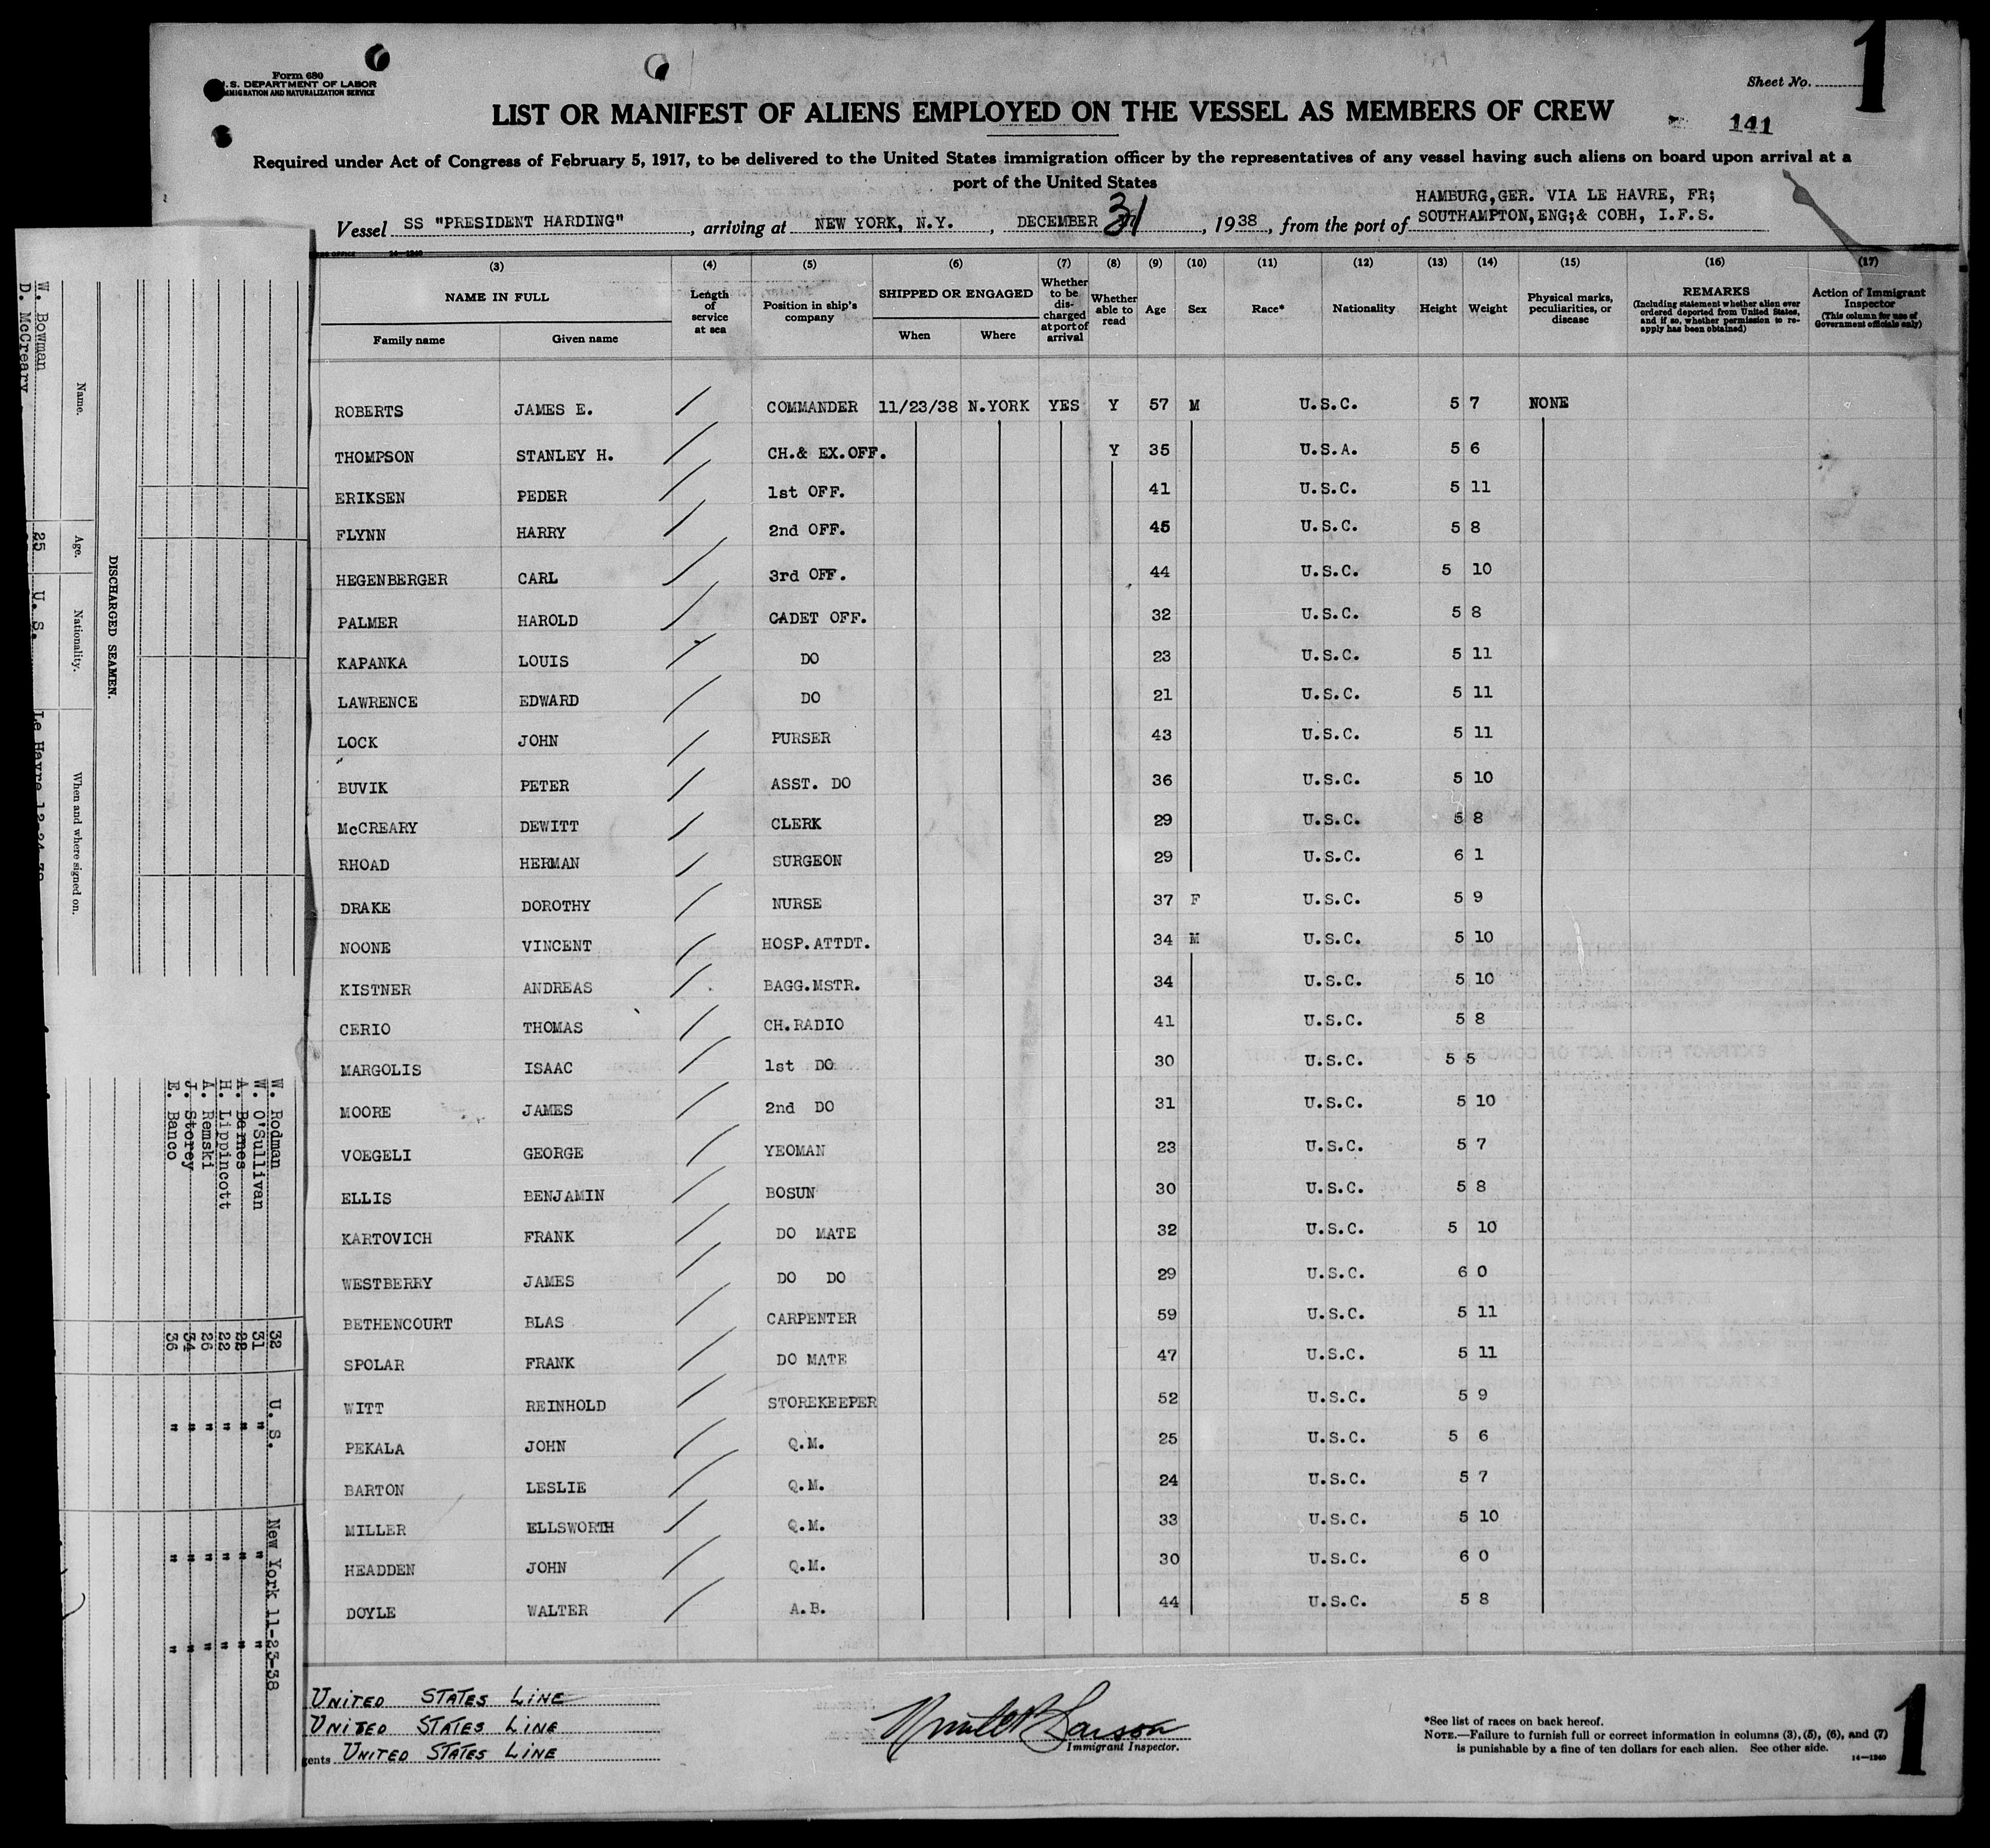 1
Form 680
U.S. DEPARTMENT OF LABOR
IMMIGRATION AND NATURALIZATION SERVICE
Sheet No.
LIST OR MANIFEST OF ALIENS EMPLOYED ON THE VESSEL AS MEMBERS OF CREW
141
Required under Act of Congress of February 5, 1917, to be delivered to the United States immigration officer by the representatives of any vessel having such aliens on board upon arrival at a
port of the United States
HAMBURG,GER. VIA LE HAVRE, FR;
Vessel SS "PRESIDENT HARDING", arriving at NEW YORK, N.Y., DECEMBER 31, 1938, from the port of SOUTHAMPTON,ENG;& COBH, I.F.S.
(3) (4) (5) (6) (7) (8) (9) (10) (11) (12) (13) (14) (15) (16) (17)
NAME IN FULL
Family name Given name
Length of service at sea
Position in ship's company
SHIPPED OR ENGAGED
When Where
Whether to be discharged at port of arrival
Whether able to read
Age
Sex
Race*
Nationality
Height
Weight
Physical marks, peculiarities, or disease
REMARKS
(Including statement whether alien ever ordered deported from United States, and if so, whether permission to reapply has been obtained)
Action of Immigrant Inspector
(This column for use of Government officials only)
ROBERTS JAMES E. COMMANDER 11/23/38 N.YORK YES Y 57 M U.S.C. 5 7 NONE
THOMPSON STANLEY H. CH.& EX.OFF. Y 35 U.S.A. 5 6
ERIKSEN PEDER 1st OFF. 41 U.S.C. 5 11
FLYNN HARRY 2nd OFF. 45 U.S.C. 5 8
HEGENBERGER CARL 3rd OFF. 44 U.S.C. 5 10
PALMER HAROLD CADET OFF. 32 U.S.C. 5 8
KAPANKA LOUIS DO 23 U.S.C. 5 11
LAWRENCE EDWARD DO 21 U.S.C. 5 11
LOCK JOHN PURSER 43 U.S.C. 5 11
BUVIK PETER ASST. DO 36 U.S.C. 5 10
McCREARY DEWITT CLERK 29 U.S.C. 5 8
RHOAD HERMAN SURGEON 29 U.S.C. 6 1
DRAKE DOROTHY NURSE 37 F U.S.C. 5 9
NOONE VINCENT HOSP.ATTDT. 34 M U.S.C. 5 10
KISTNER ANDREAS BAGG.MSTR. 34 U.S.C. 5 10
CERIO THOMAS CH.RADIO 41 U.S.C. 5 8
MARGOLIS ISAAC 1st DO 30 U.S.C. 5 5
MOORE JAMES 2nd DO 31 U.S.C. 5 10
VOEGELI GEORGE YEOMAN 23 U.S.C. 5 7
ELLIS BENJAMIN BOSUN 30 U.S.C. 5 8
KARTOVICH FRANK DO MATE 32 U.S.C. 5 10
WESTBERRY JAMES DO DO 29 U.S.C. 6 0
BETHENCOURT BLAS CARPENTER 59 U.S.C. 5 11
SPOLAR FRANK DO MATE 47 U.S.C. 5 11
WITT REINHOLD STOREKEEPER 52 U.S.C. 5 9
PEKALA JOHN Q.M. 25 U.S.C. 5 6
BARTON LESLIE Q.M. 24 U.S.C. 5 7
MILLER ELLSWORTH Q.M. 33 U.S.C. 5 10
HEADDEN JOHN Q.M. 30 U.S.C. 6 0
DOYLE WALTER A.B. 44 U.S.C. 5 8
UNITED STATES LINE
UNITED STATES LINE
gents UNITED STATES LINE
Larson
Immigrant Inspector.
*See list of races on back hereof.
NOTE.—Failure to furnish full or correct information in columns (3), (5), (6), and (7)
is punishable by a fine of ten dollars for each alien. See other side.
14—1240
1
DISCHARGED SEAMEN.
Name. Age. Nationality. When and where signed on.
W. Bowman 25 U.S. Le Havre
D. McCreary
W. Rodman 32 U.S. New York 11-23-38
W. O'Sullivan 31 " " "
A. Barnes 22 " " "
H. Lippincott 22 " " "
A. Remski 26 " " "
J. Storey 34 " " "
E. Banco 36 " " "